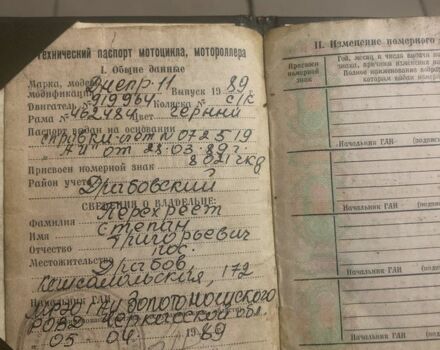 Технический паспорт мотоцикла, мотороллера
I. Общие данные
Марка, модель Днепр-11
модификация Выпуск 1989 г.
Двигатель № 919964 Коляска № с/к
Рама № 462484 Цвет черный
Паспорт выдан на основании
справки-счет № 072519
"АИ" от 28.03.89 г.
Присвоен номерной знак 8021 чкд
Район учета Драбовский
СВЕДЕНИЯ О ВЛАДЕЛЬЦЕ:
Фамилия Перехрест
Имя Степан
Отчество Григорьевич
Местожительство пос.
Драбов,
Комсомольская, 172
Начальник ГАИ
МРЭО ГАИ Золотоношского
РОВД Черкасской обл.
05 04 1989
II. Изменение номерного
Присвоен
номерной
знак
Год, месяц и число выдачи
знака, причина изменения
Полное наименование
которым выдан номерной
Начальник ГАИ
Начальник ГАИ
Начальник ГАИ
Начальник ГАИ